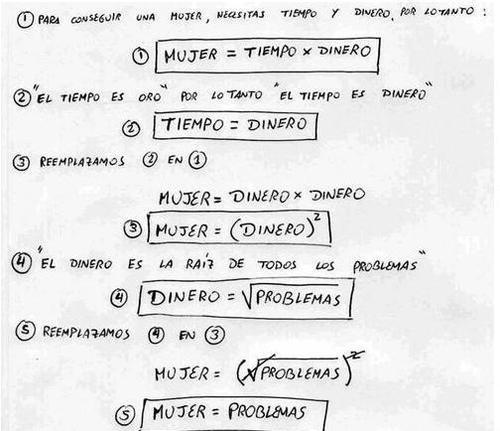 ① PARA CONSEGUIR UNA MUJER, NECESITAS TIEMPO Y DINERO, POR LO TANTO :
① MUJER = TIEMPO x DINERO
② "EL TIEMPO ES ORO" POR LO TANTO "EL TIEMPO ES DINERO"
② TIEMPO = DINERO
③ REEMPLAZAMOS ② EN ①
MUJER = DINERO x DINERO
③ MUJER = (DINERO)²
④ "EL DINERO ES LA RAÍZ DE TODOS LOS PROBLEMAS"
④ DINERO = √PROBLEMAS
⑤ REEMPLAZAMOS ④ EN ③
MUJER = (√PROBLEMAS)²
⑤ MUJER = PROBLEMAS